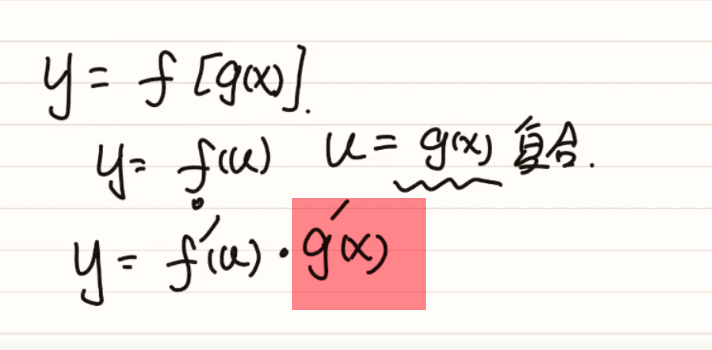 y = f [g(x)].
y = f(u) u = g(x) 复合.
y = f'(u) · g'(x)